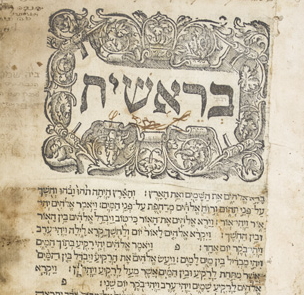 בראשית
ברא אלהים את השמים ואת הארץ : והארץ היתה תהו ובהו וחשך
על פני תהום ורוח אלהים מרחפת על-פני המים : ויאמר אלהים יהי
אור ויהי אור : וירא אלהים את האור כי טוב ויבדל אלהים בין האור
ובין החשך : ויקרא אלהים לאור יום ולחשך קרא לילה ויהי ערב
ויהי בקר יום אחד : פ ויאמר אלהים יהי רקיע בתוך המים
ויהי מבדיל בין מים למים : ויעש אלהים את הרקיע ויבדל בין המים
אשר מתחת לרקיע ובין המים אשר מעל לרקיע ויהי כן : ויקרא
אלהים לרקיע שמים ויהי ערב ויהי בקר יום שני : פ